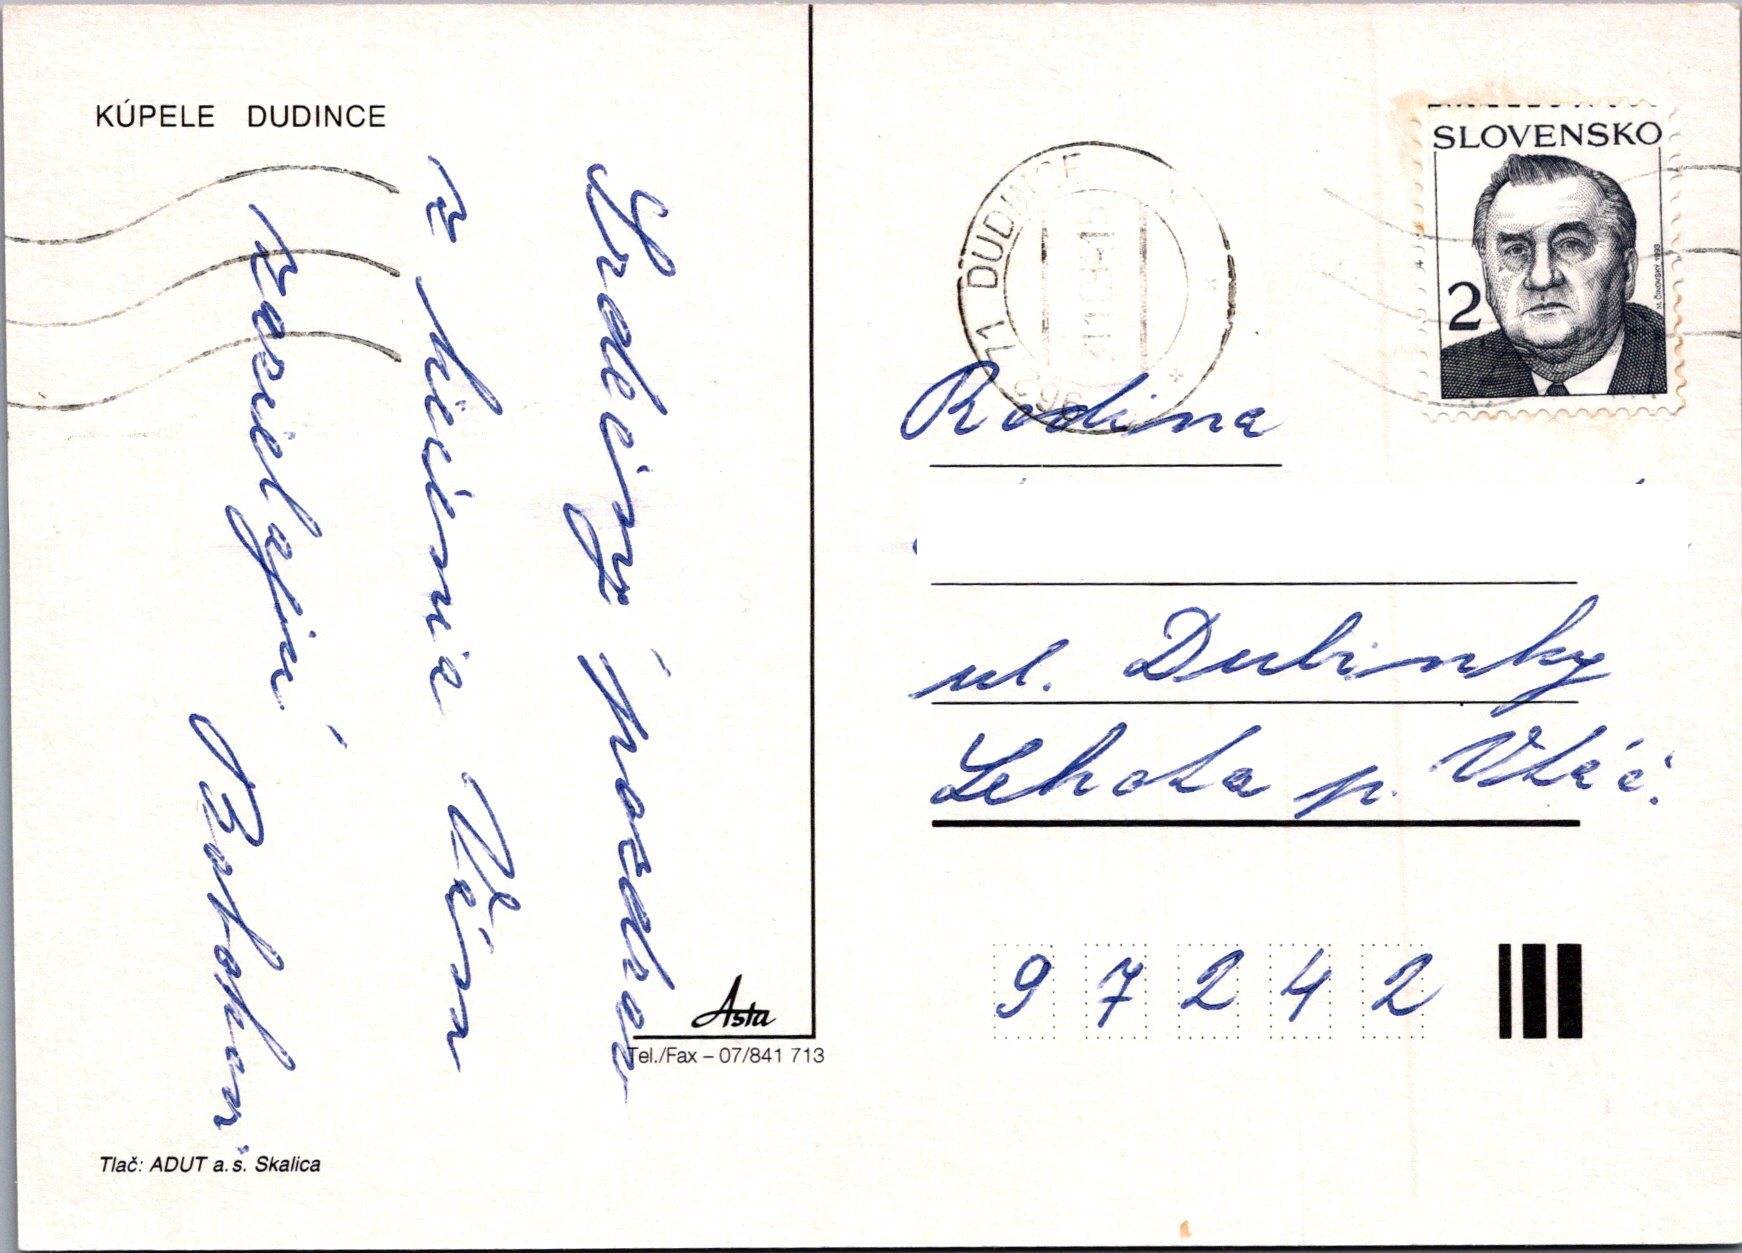 KÚPELE DUDINCE
Srdečný pozdrav
z liečenia Vám
zasielajú
Tlač: ADUT a. s. Skalica
Asta
Tel./Fax – 07/841 713
11 DUDINCE
962
SLOVENSKO
2
M. ČINOVSKÝ 1993
Rodina
ul. Dubinky
Lehota p. Vtáč.
9 7 2 4 2